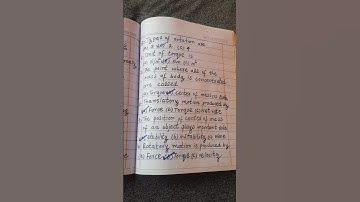 Types of rotation are
(a) 3 (b) 2 (c) 4
Unit of torque is
The point where all of the
mass of body is concentrated
are called
(a) Torque (b) Center of mass (c) Body
Translatory motion produced by
(a) Force (b) Torque (c) Net rate
The position of center of mass
of an object plays important role
Stability (b) instability (c) none
Rotatory motion is produced by
(a) Force (b) Torque (c) velocity